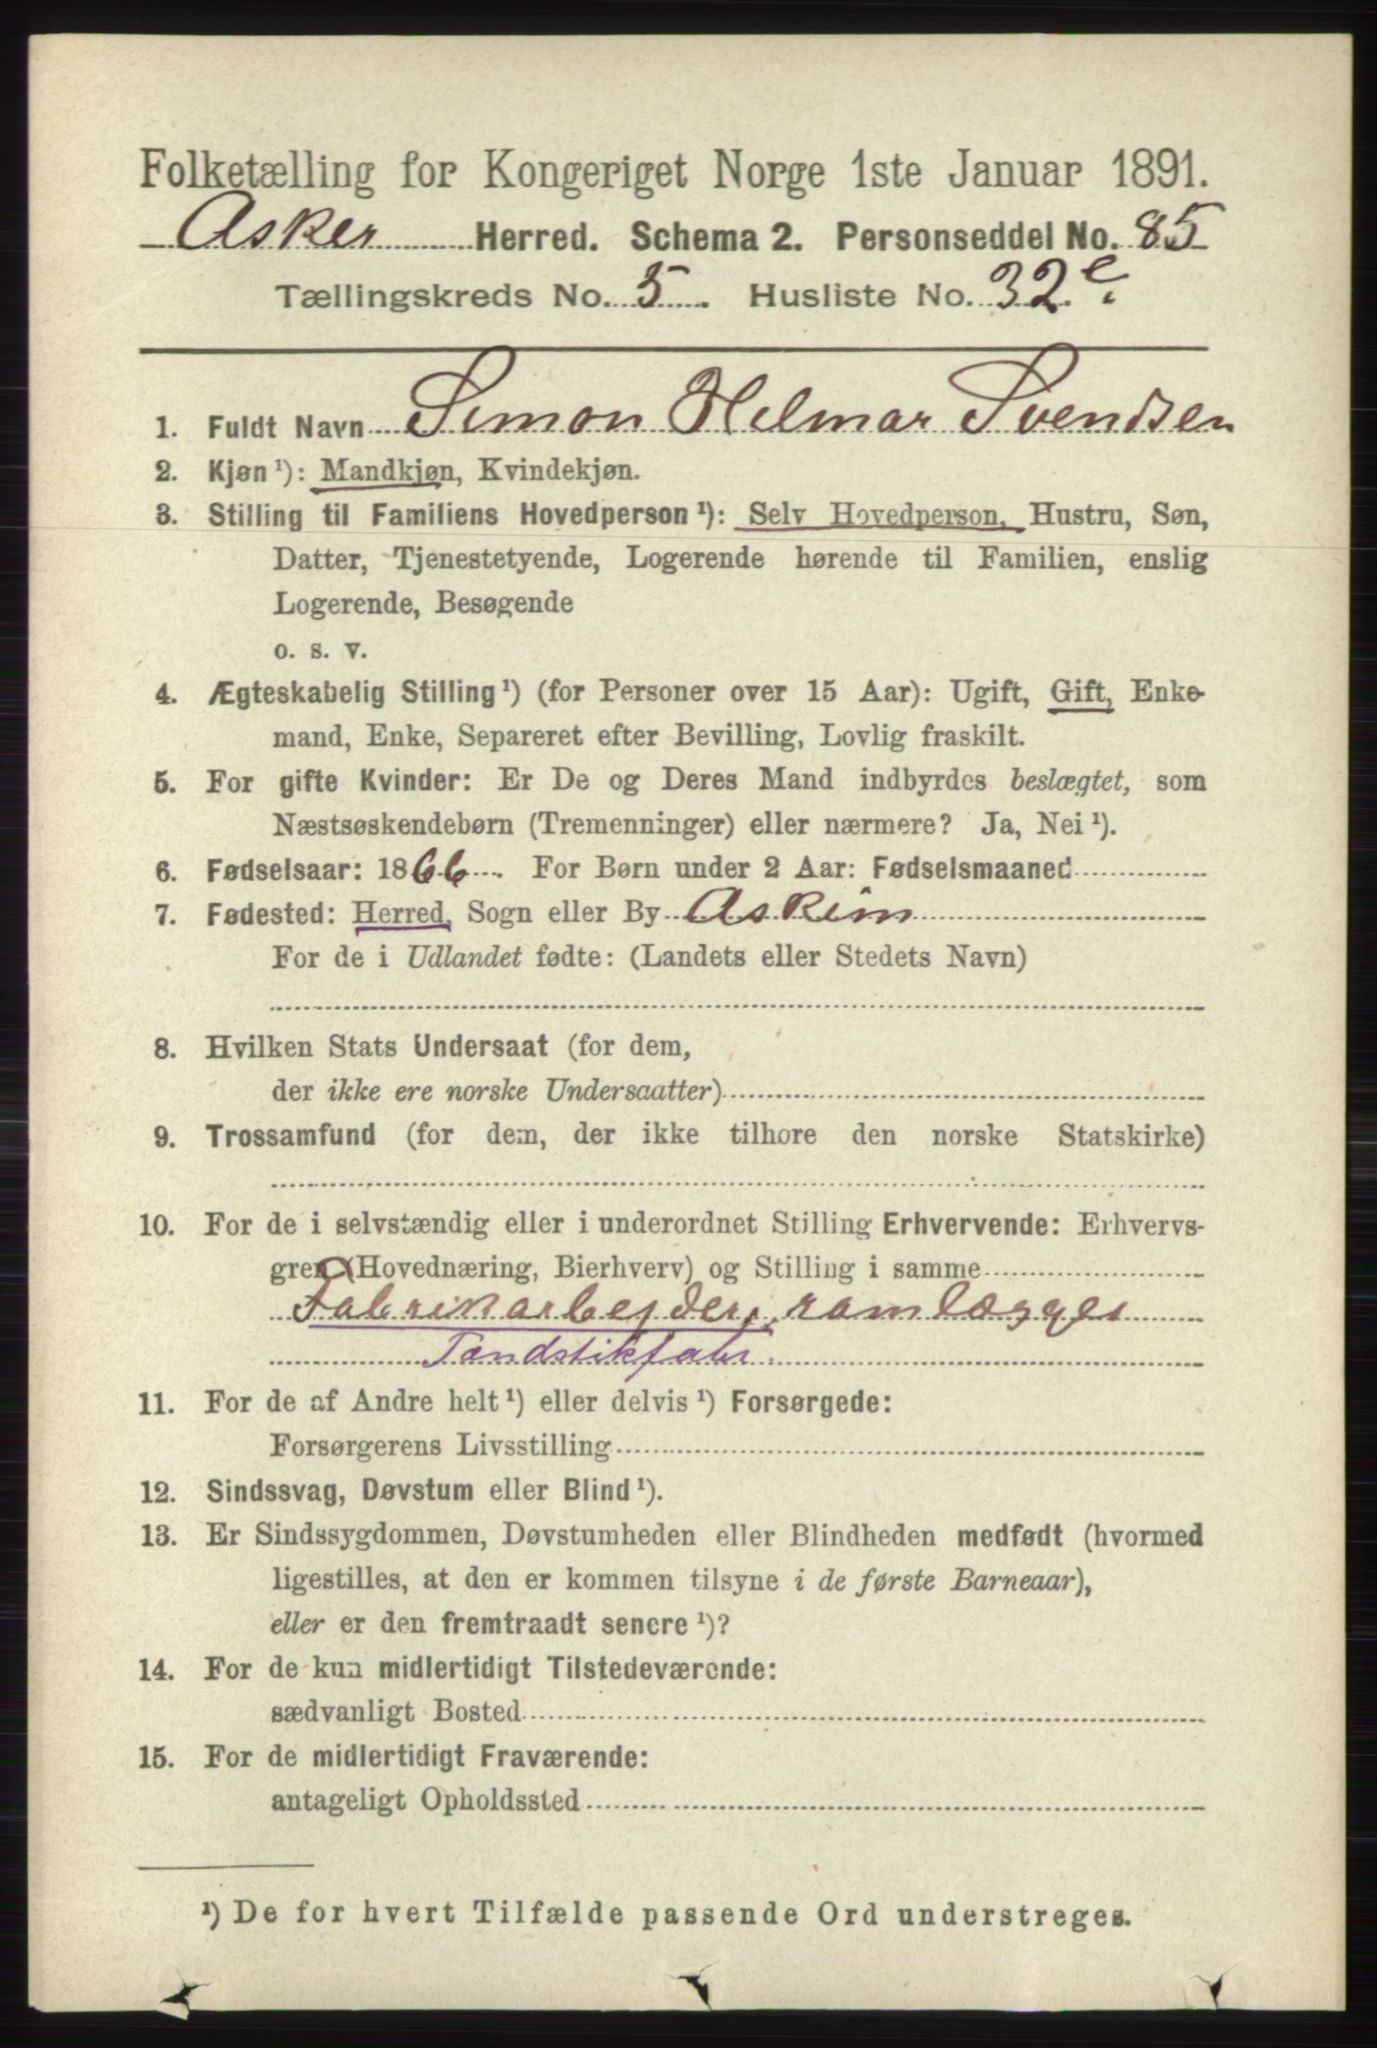 Folketælling for Kongeriget Norge 1ste Januar 1891.
Asker Herred. Schema 2. Personseddel No. 85
Tællingskreds No. 5. Husliste No. 32 e.
1. Fuldt Navn Simon Helmar Svendsen
2. Kjøn¹): Mandkjøn, Kvindekjøn.
3. Stilling til Familiens Hovedperson¹): Selv Hovedperson, Hustru, Søn,
Datter, Tjenestetyende, Logerende hørende til Familien, enslig
Logerende, Besøgende
o. s. v.
4. Ægteskabelig Stilling¹) (for Personer over 15 Aar): Ugift, Gift, Enke-
mand, Enke, Separeret efter Bevilling, Lovlig fraskilt.
5. For gifte Kvinder: Er De og Deres Mand indbyrdes beslægtet, som
Næstsøskendebørn (Tremenninger) eller nærmere? Ja, Nei¹).
6. Fødselsaar: 1866. For Børn under 2 Aar: Fødselsmaaned
7. Fødested: Herred, Sogn eller By Askim
For de i Udlandet fødte: (Landets eller Stedets Navn)
8. Hvilken Stats Undersaat (for dem,
der ikke ere norske Undersaatter)
9. Trossamfund (for dem, der ikke tilhøre den norske Statskirke)
10. For de i selvstændig eller i underordnet Stilling Erhvervende: Erhvervs-
gren (Hovednæring, Bierhverv) og Stilling i samme
Fabrikarbejder, ramlægger
Tændstikfabr.
11. For de af Andre helt¹) eller delvis¹) Forsørgede:
Forsørgerens Livsstilling
12. Sindssvag, Døvstum eller Blind¹).
13. Er Sindssygdommen, Døvstumheden eller Blindheden medfødt (hvormed
ligestilles, at den er kommen tilsyne i de første Barneaar),
eller er den fremtraadt senere¹)?
14. For de kun midlertidigt Tilstedeværende:
sædvanligt Bosted
15. For de midlertidigt Fraværende:
antageligt Opholdssted
¹) De for hvert Tilfælde passende Ord understreges.